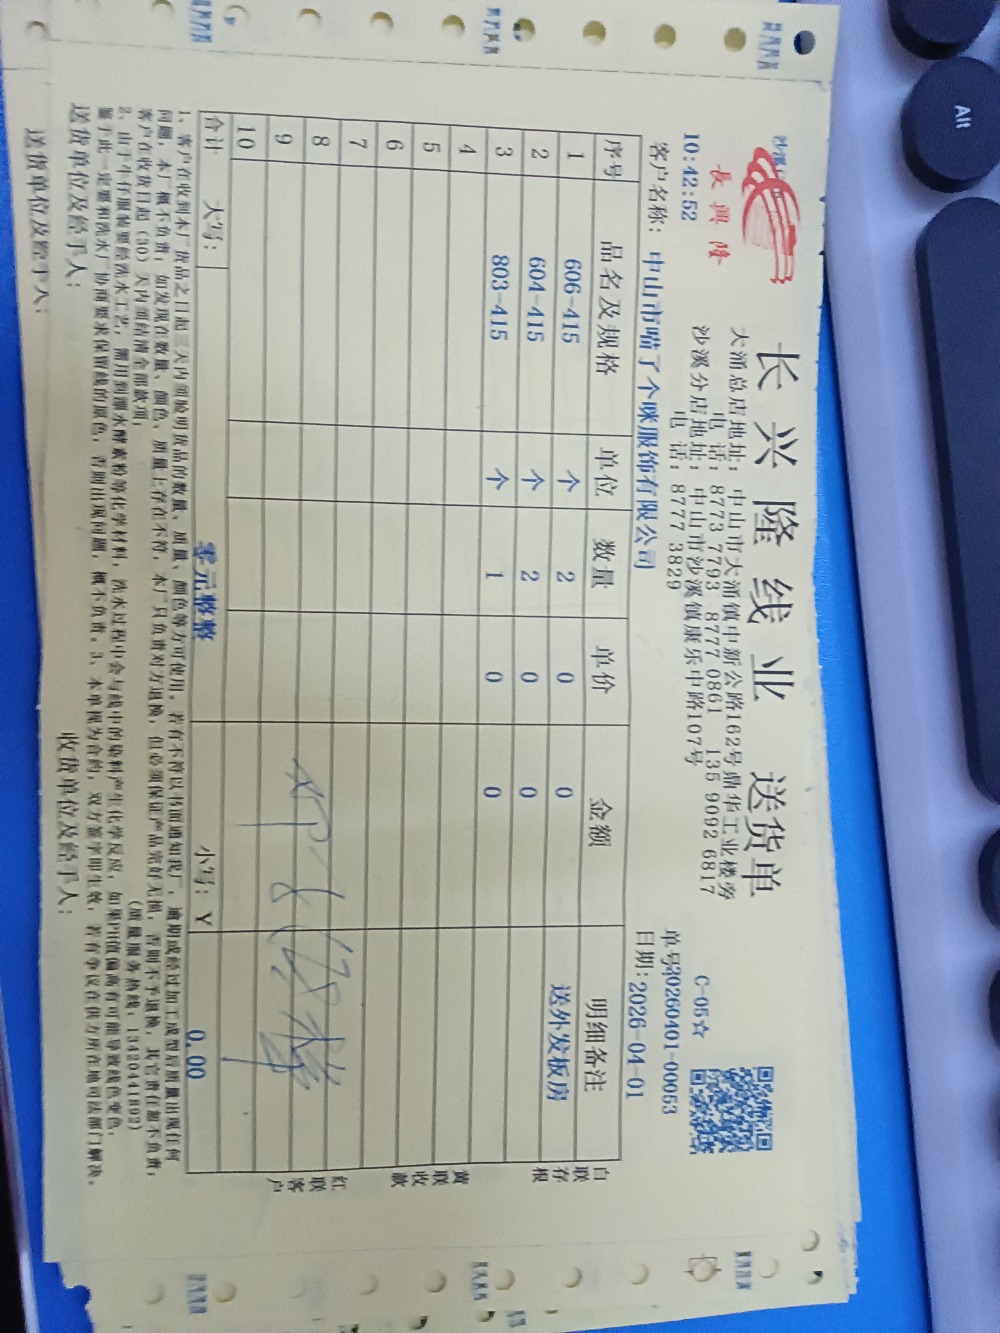 长兴隆线业 送货单
長興隆
C-05☆
大涌总店地址: 中山市大涌镇中新公路162号鼎华工业楼旁
电 话: 8773 7793 8777 0861 135 9092 6817
沙溪分店地址: 中山市沙溪镇康乐中路107号
电 话: 8777 3829
10:42:52
单号20260401-00053
客户名称: 中山市喵了个咪服饰有限公司
日期: 2026-04-01
序号 品名及规格 单位 数量 单价 金额 明细备注
1 606-415 个 2 0 0 送外发板房
2 604-415 个 2 0 0
3 803-415 个 1 0 0
4
5
6
7
8
9
10
合计 大写: 零元整整 小写: Y 0.00
白联存根
黄联收款
红联客户
1、客户在收到本厂货品之日起三天内须验明货品的数量、质量、颜色等方可使用。若有不符以书面通知我厂，逾期或经过加工成型后质量出现任何
问题，本厂概不负责；如发现在数量、颜色、质量上存在不符，本厂只负责对方退换，但必须保证产品完好无损，否则不予退换，其它责任恕不负责；
客户在收货日起（30）天内须结清全部款项； (质量服务热线: 13420441892)
2、由于牛仔服装要经洗水工艺，需用到漂水酵素粉等化学材料，洗水过程中会与线中的染料产生化学反应，如果PH值偏高有可能导致线色变色，
鉴于此一定要和洗水厂协商要求保留线的原色，否则出现问题，概不负责。3、本单视为合约，双方签字即生效，若有争议在供方所在地司法部门解决。
送货单位及经手人: 收货单位及经手人:
送货单位及经手人:
Alt